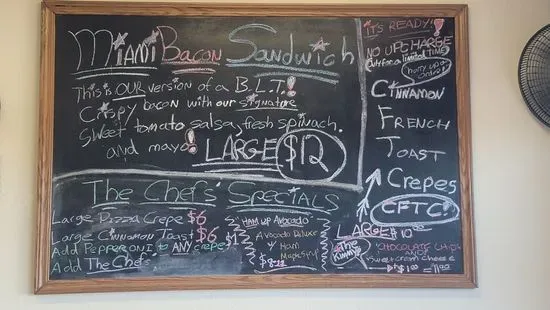 Miami Bacon Sandwich
This is OUR version of a B.L.T.!
Crispy bacon with our signature
sweet tomato salsa, fresh spinach.
and mayo! LARGE $12
The Chefs' Specials
Large Pizza Crepe $6
Large Cinnamon Toast $6
Add Pepperoni to ANY crepe $1
Add The Chefs'
HAM UP AVOCADO
Avocado Deluxe
Ham
$8
IT'S READY!
NO UPCHARGE
only for a limited TIME
hurry up & order!
Cinnamon
French
Toast
Crepes
CFTC!
LARGE $10
The Kimmy
CHOCOLATE CHIPS
AND
sweet cream cheese
$1.00 = 11.00